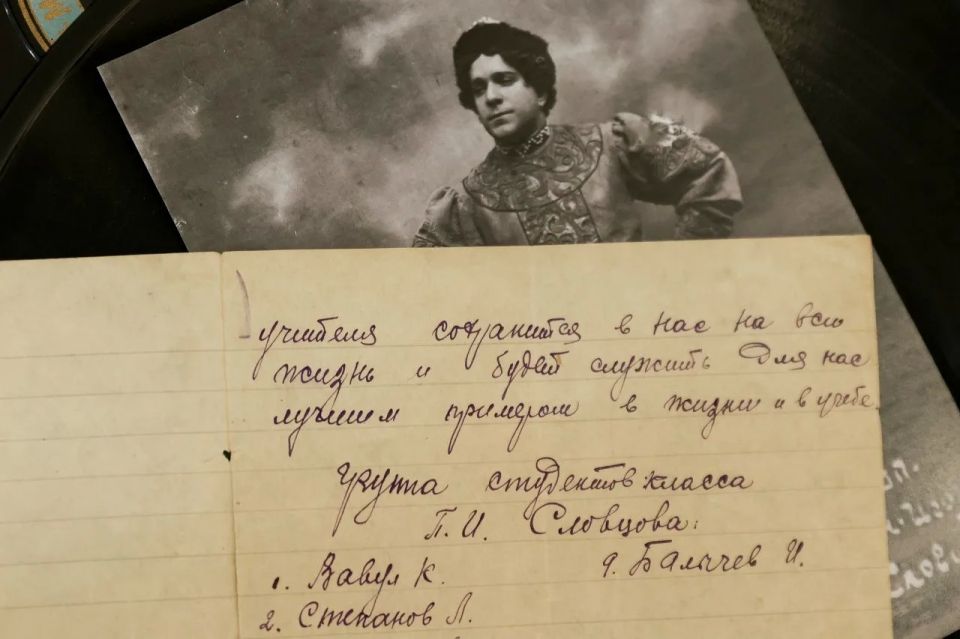 учителя сохранится в нас на всю
жизнь и будет служить для нас
лучшим примером в жизни и в учебе
Группа студентов класса
П.И. Словцова:
1. Вавул К. 9. Балычев И.
2. Степанов Л.